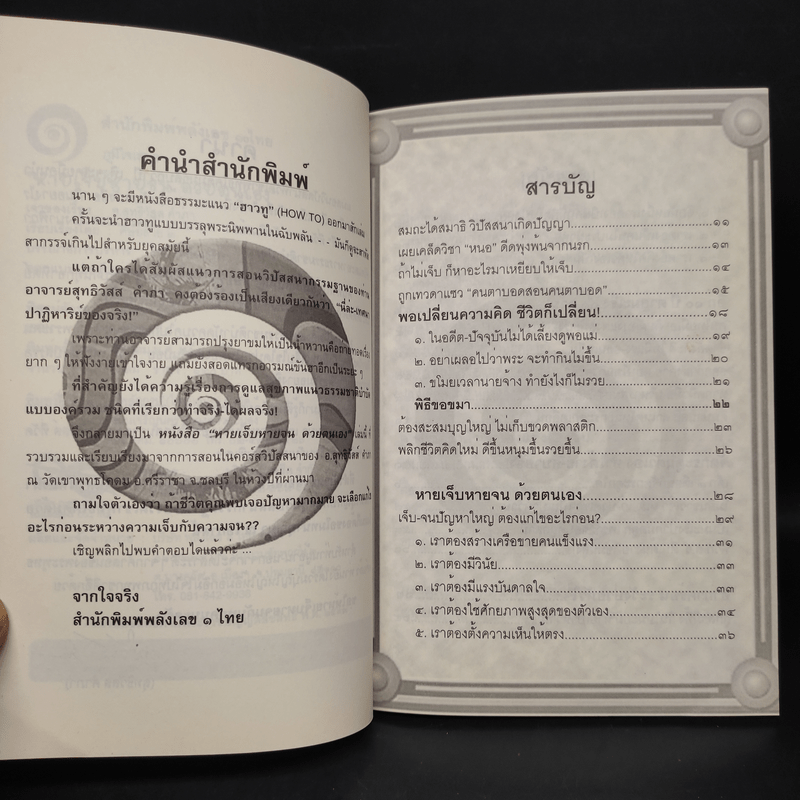 คำนำสำนักพิมพ์
นาน ๆ จะมีหนังสือธรรมะแนว “ฮาวทู” (HOW TO) ออกมาสักเล่ม
ครั้นจะนำฮาวทูแบบบรรลุพระนิพพานในฉับพลัน - - มันก็ดูจะ
สากรรจ์เกินไปสำหรับยุคสมัยนี้
แต่ถ้าใครได้สัมผัสแนวการสอนวิปัสสนากรรมฐานของท่าน
อาจารย์สุทธิวัสส์ คำภา คงต้องร้องเป็นเสียงเดียวกันว่า “นี่ล่ะ
ปาฏิหาริย์ของจริง!”
เพราะท่านอาจารย์สามารถปรุงยาขมให้เป็นน้ำหวานคือถ่ายทอดเรื่อง
ยาก ๆ ให้ฟังง่ายเข้าใจง่าย แถมยังสอดแทรกอารมณ์ขันขำอีกเป็นระยะ ๆ
ที่สำคัญยังได้ความรู้เรื่องการดูแลสุขภาพแนวธรรมชาติบำบัด
แบบองค์รวม ชนิดที่เรียกว่าทำจริง-ได้ผลจริง!
จึงกลายมาเป็น หนังสือ “หายเจ็บหายจน ด้วยตนเอง” เล่มนี้ ที่
รวบรวมและเรียบเรียงมาจากการสอนในคอร์สวิปัสสนาของ อ.สุทธิวัสส์ คำภา
ณ วัดเขาพุทธโคดม อ.ศรีราชา จ.ชลบุรี ในห้วงปีที่ผ่านมา
ถามใจตัวเองว่า ถ้าชีวิตคุณพบเจอปัญหามากมาย จะเลือกแก้ไข
อะไรก่อนระหว่างความเจ็บกับความจน??
เชิญพลิกไปพบคำตอบได้แล้วค่ะ ...
จากใจจริง
สำนักพิมพ์พลังเลข ๑ ไทย
สารบัญ
สมถะได้สมาธิ วิปัสสนาเกิดปัญญา....๑๑
เผยเคล็ดวิชา “หนอ” ดีดพุ่งพ้นจากนรก....๑๓
ถ้าไม่เจ็บ ก็หาอะไรมาเหยียบให้เจ็บ....๑๔
ถูกเทวดาแซว “คนตาบอดสอนคนตาบอด”....๑๕
พอเปลี่ยนความคิด ชีวิตก็เปลี่ยน!....๑๘
๑. ในอดีต-ปัจจุบันไม่ได้เลี้ยงดูพ่อแม่....๑๙
๒. อย่าเผลอไปว่าพระ จะทำกินไม่ขึ้น....๒๐
๓. ขโมยเวลานายจ้าง ทำยังไงก็ไม่รวย....๒๑
พิธีขอขมา....๒๒
ต้องสะสมบุญใหญ่ ไม่เก็บขวดพลาสติก....๒๓
พลิกชีวิตคิดใหม่ ดีขึ้นหนุ่มขึ้นรวยขึ้น....๒๖
หายเจ็บหายจน ด้วยตนเอง....๒๘
เจ็บ-จนปัญหาใหญ่ ต้องแก้ไขอะไรก่อน?....๒๙
๑. เราต้องสร้างเครือข่ายคนแข็งแรง....๓๑
๒. เราต้องมีวินัย....๓๓
๓. เราต้องมีแรงบันดาลใจ....๓๓
๔. เราต้องใช้ศักยภาพสูงสุดของตัวเอง....๓๔
๕. เราต้องตั้งความเห็นให้ตรง....๓๖